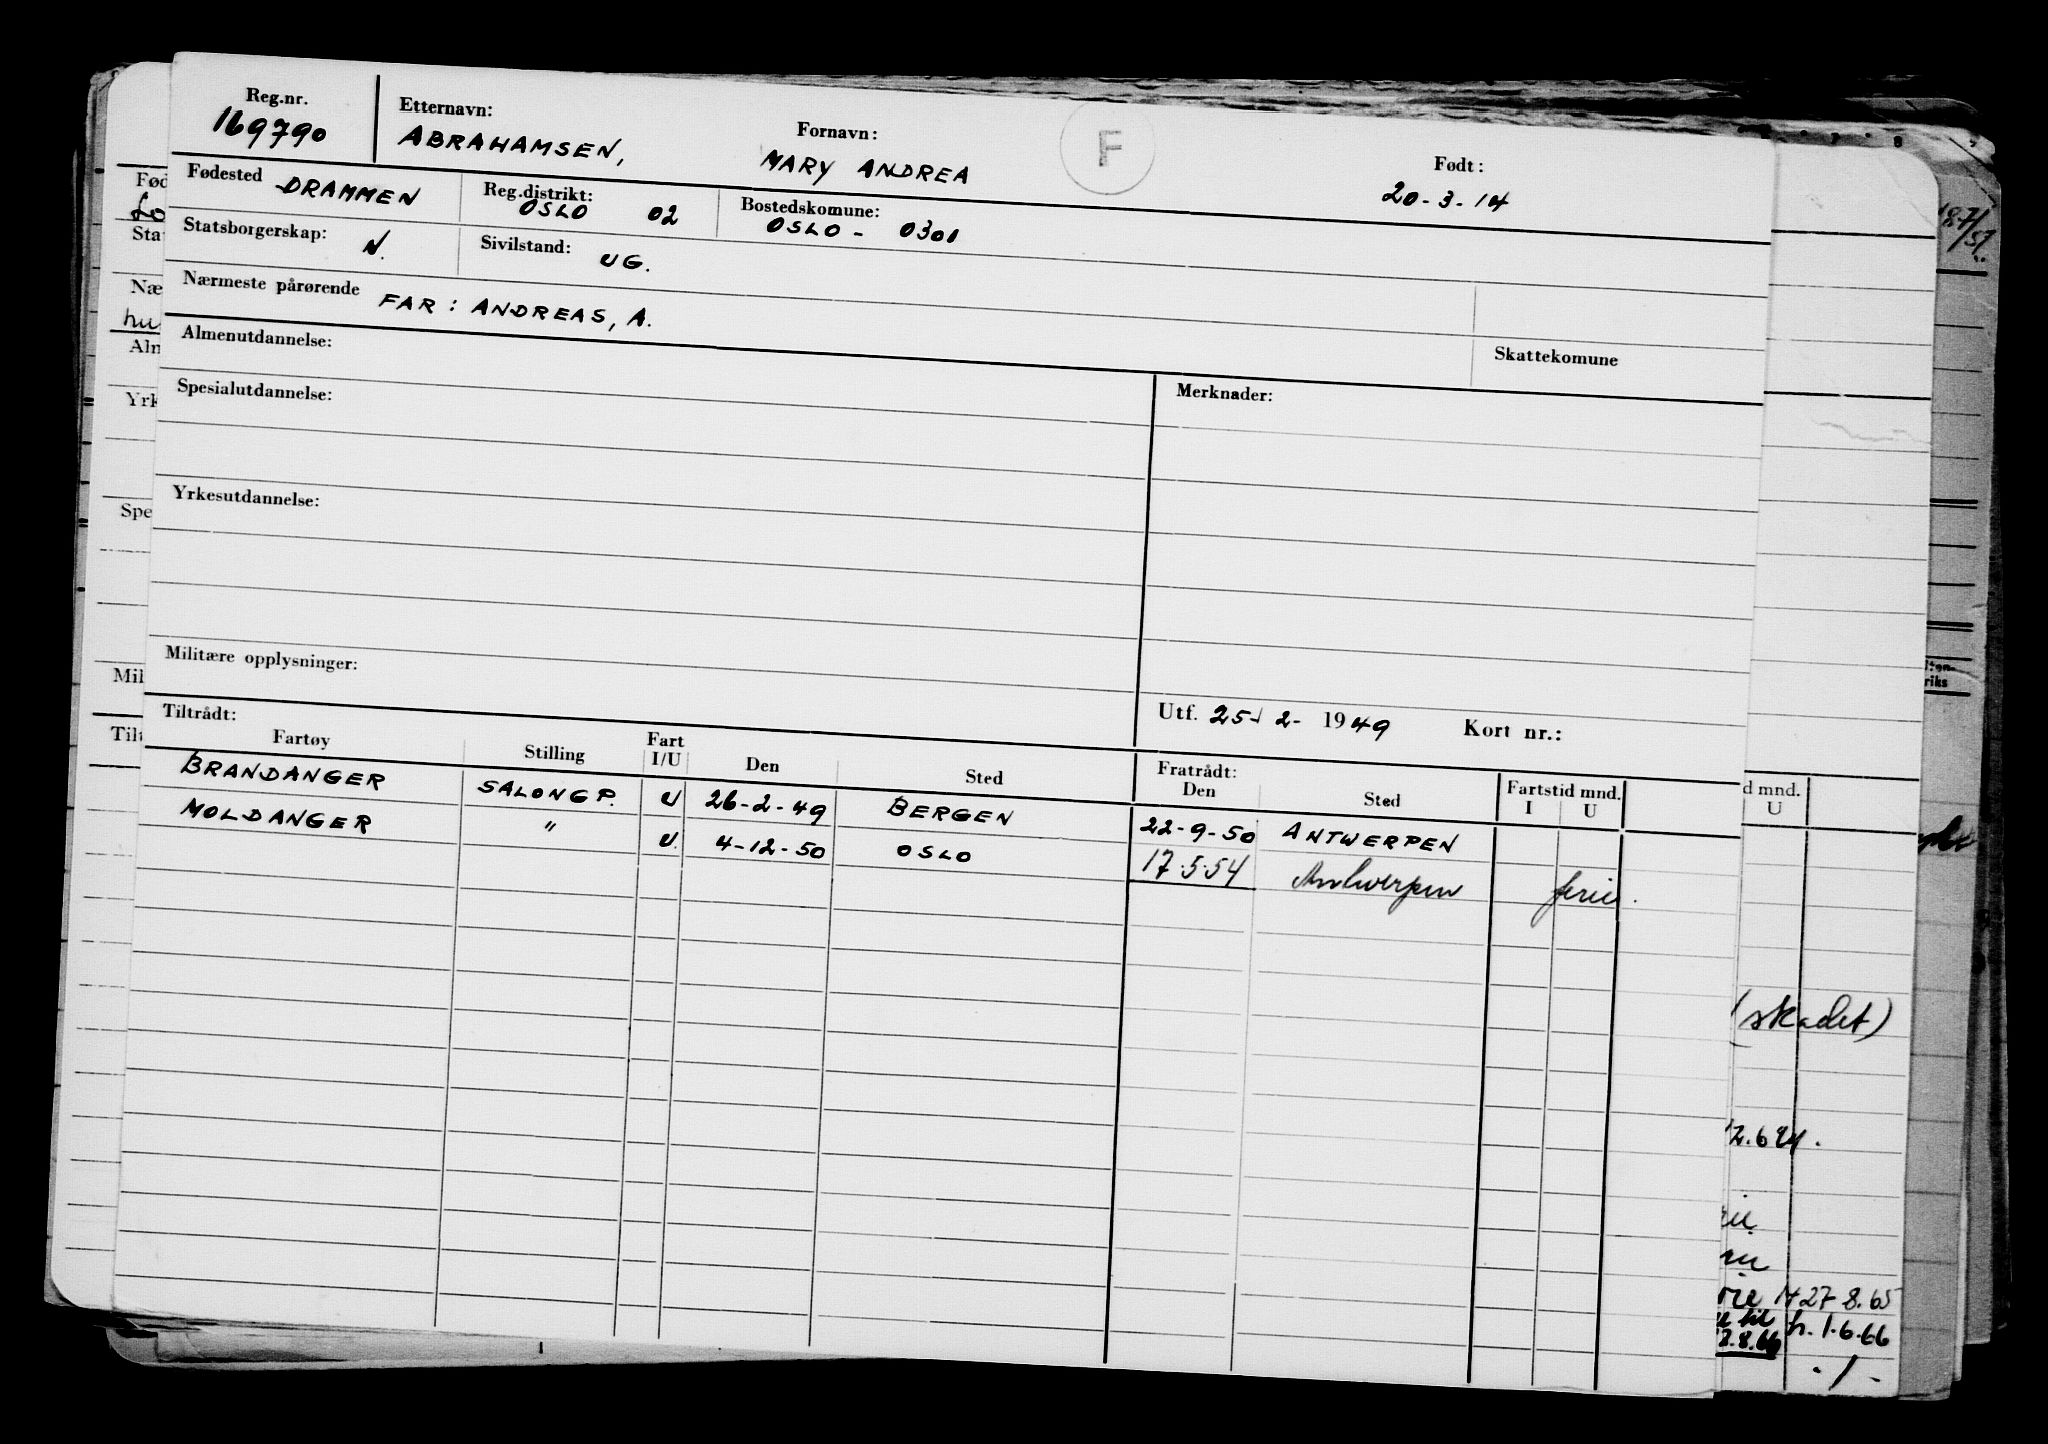 Reg.nr. Etternavn: Fornavn: F Født:
169790 ABRAHAMSEN, MARY ANDREA 20-3-14
Fødested DRAMMEN Reg.distrikt: OSLO 02 Bostedskomune: OSLO - 0301
Statsborgerskap: N. Sivilstand: UG.
Nærmeste pårørende FAR: ANDREAS, A.
Almenutdannelse: Skattekomune
Spesialutdannelse: Merknader:
Yrkesutdannelse:
Militære opplysninger:
Utf. 25-2-1949 Kort nr.:
Tiltrådt: Fratrådt:
Fartøy Stilling Fart I/U Den Sted Den Sted Fartstid mnd. I U
BRANDANGER SALONGP. U 26-2-49 BERGEN 22-9-50 ANTWERPEN
MOLDANGER " U. 4-12-50 OSLO 17.5.54 Antwerpen ferie.
d mnd.
U
(skadet)
27 8.65
fr. 1.6.66